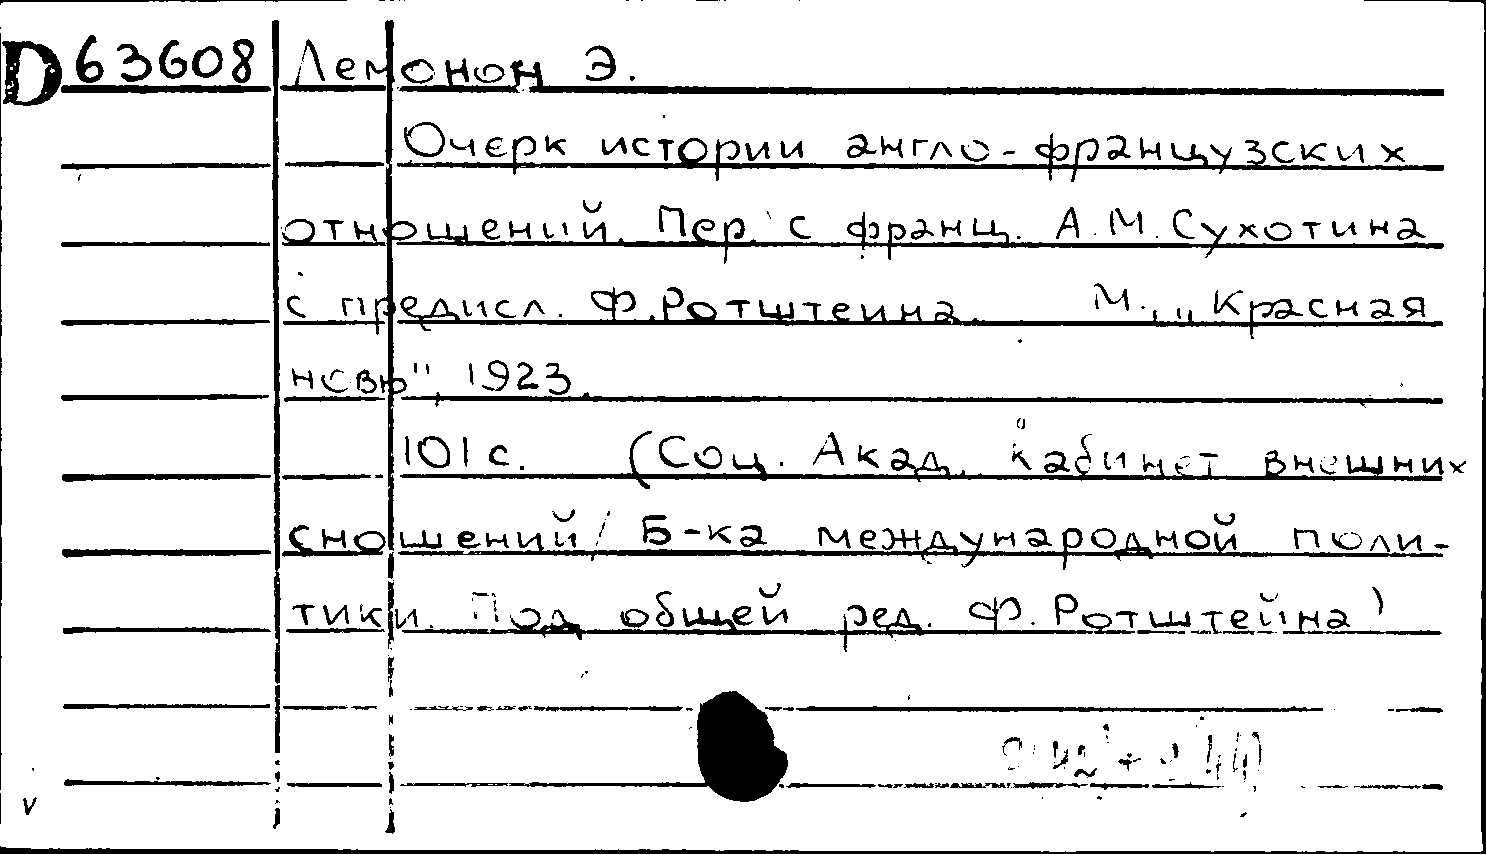 D 63608 Лемонон Э.
Очерк истории англо-французских
отношений. Пер. с франц. А.М. Сухотина
с предисл. Ф.Ротштеина. М., „Красная
новь", 1923.
101 с. (Соц. Акад. Кабинет внешних
сношений/ Б-ка международной поли-
тики. Под общей ред. Ф. Ротштейна)
v